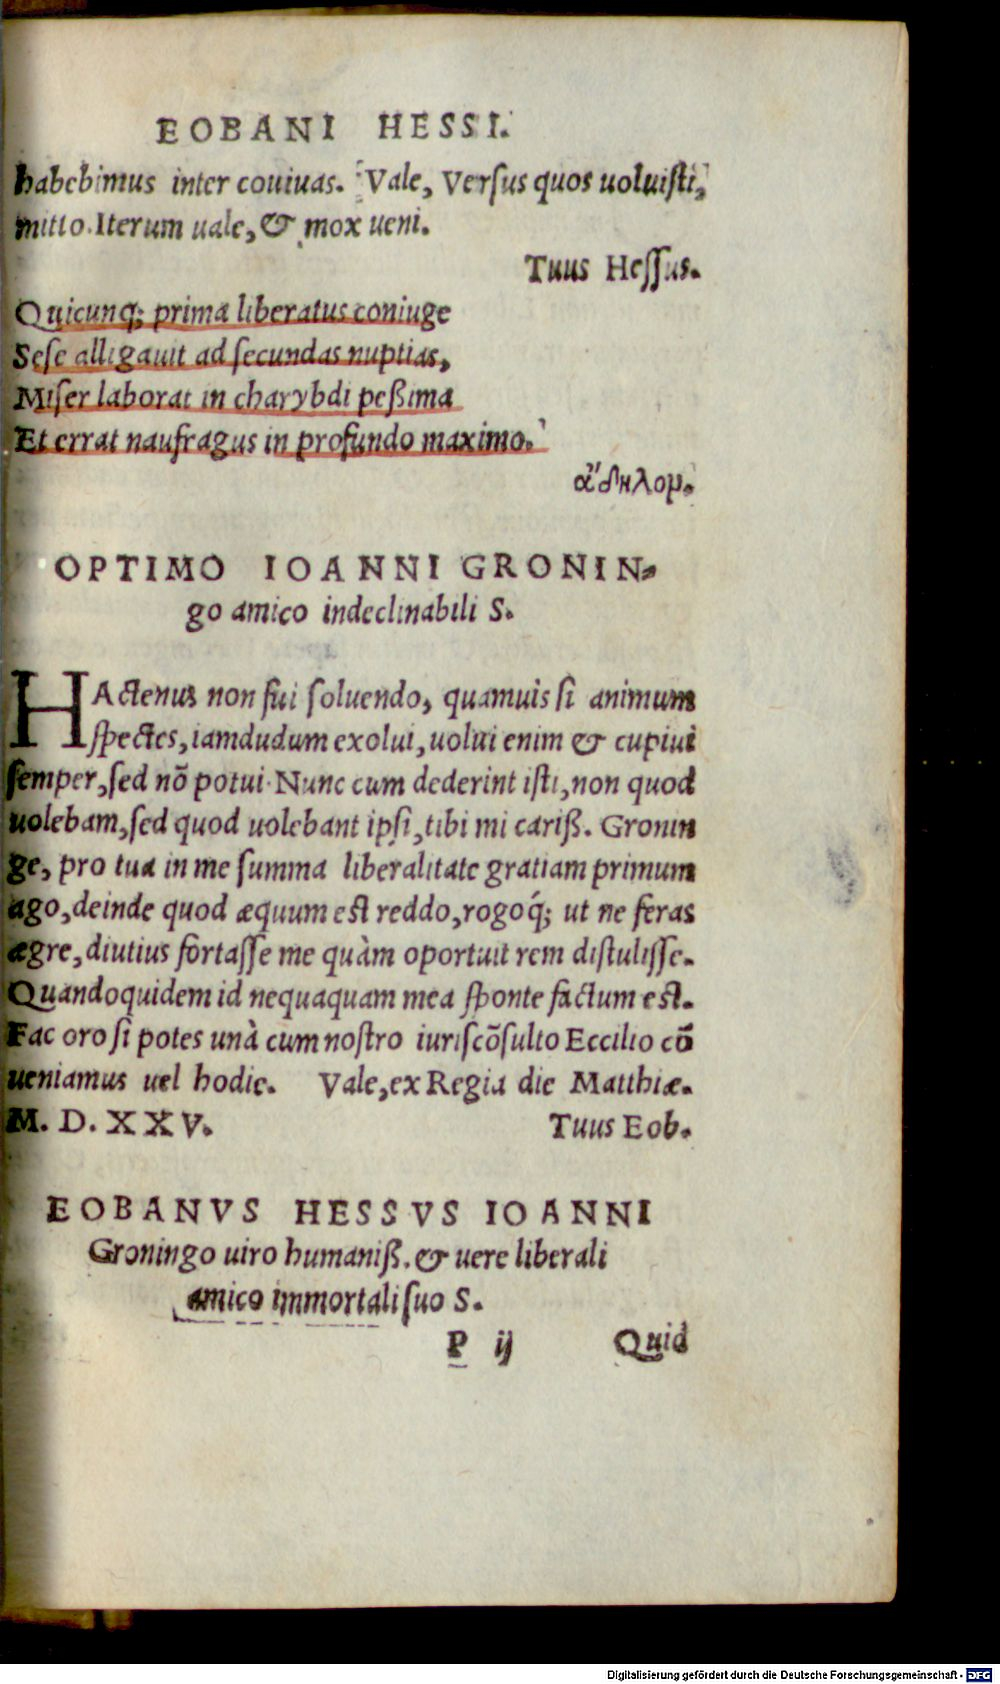 EOBANI HESSI.
habebimus inter couiuas. Vale, Versus quos uoluisti,
mitto. Iterum uale, & mox ueni.
Tuus Hessus.
Quicunq; prima liberatus coniuge
Sese alligauit ad secundas nuptias,
Miser laborat in charybdi peßima
Et errat naufragus in profundo maximo.
ἄδηλομ.
OPTIMO IOANNI GRONIN-
go amico indeclinabili S.
HActenus non fui soluendo, quamuis si animum
spectes, iamdudum exolui, uolui enim & cupiui
semper, sed nō potui. Nunc cum dederint isti, non quod
uolebam, sed quod uolebant ipsi, tibi mi cariß. Gronin
ge, pro tua in me summa liberalitate gratiam primum
ago, deinde quod æquum est reddo, rogoq́; ut ne feras
ægre, diutius fortasse me quàm oportuit rem distulisse.
Quandoquidem id nequaquam mea sponte factum est.
Fac oro si potes unà cum nostro iuriscōsulto Eccilio cō
ueniamus uel hodie. Vale, ex Regia die Matthiæ.
M. D. XXV. Tuus Eob.
EOBANVS HESSVS IOANNI
Groningo uiro humaniß. & uere liberali
amico immortali suo S.
P ij Quid
Digitalisierung gefördert durch die Deutsche Forschungsgemeinschaft - DFG